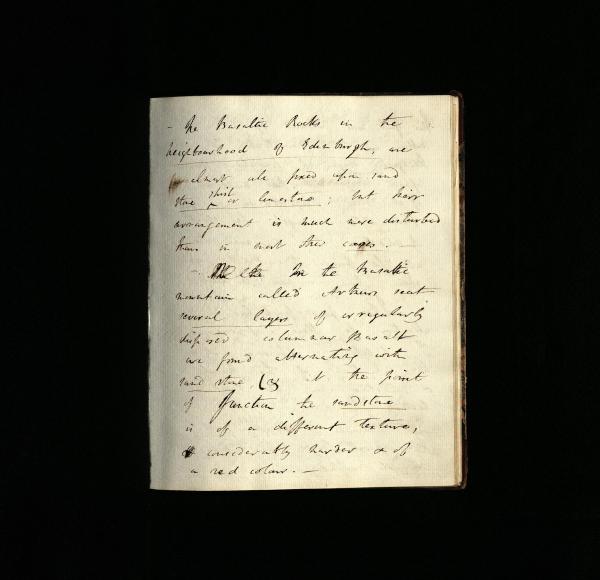 - The Basaltic Rocks in the
neighbourhood of Edinburgh, are
almost all fixed upon sand
shist
stone or limestone; but their
arrangement is much more disturbed
than in most other cases. —
- In the Basaltic
mountain called Arthurs seat
several layers of irregularly
disposed columnar Basalt
are found alternating with
sand stone (3) At the point
of junction the sandstone
is of a different texture,
considerably harder & of
a red colour. —